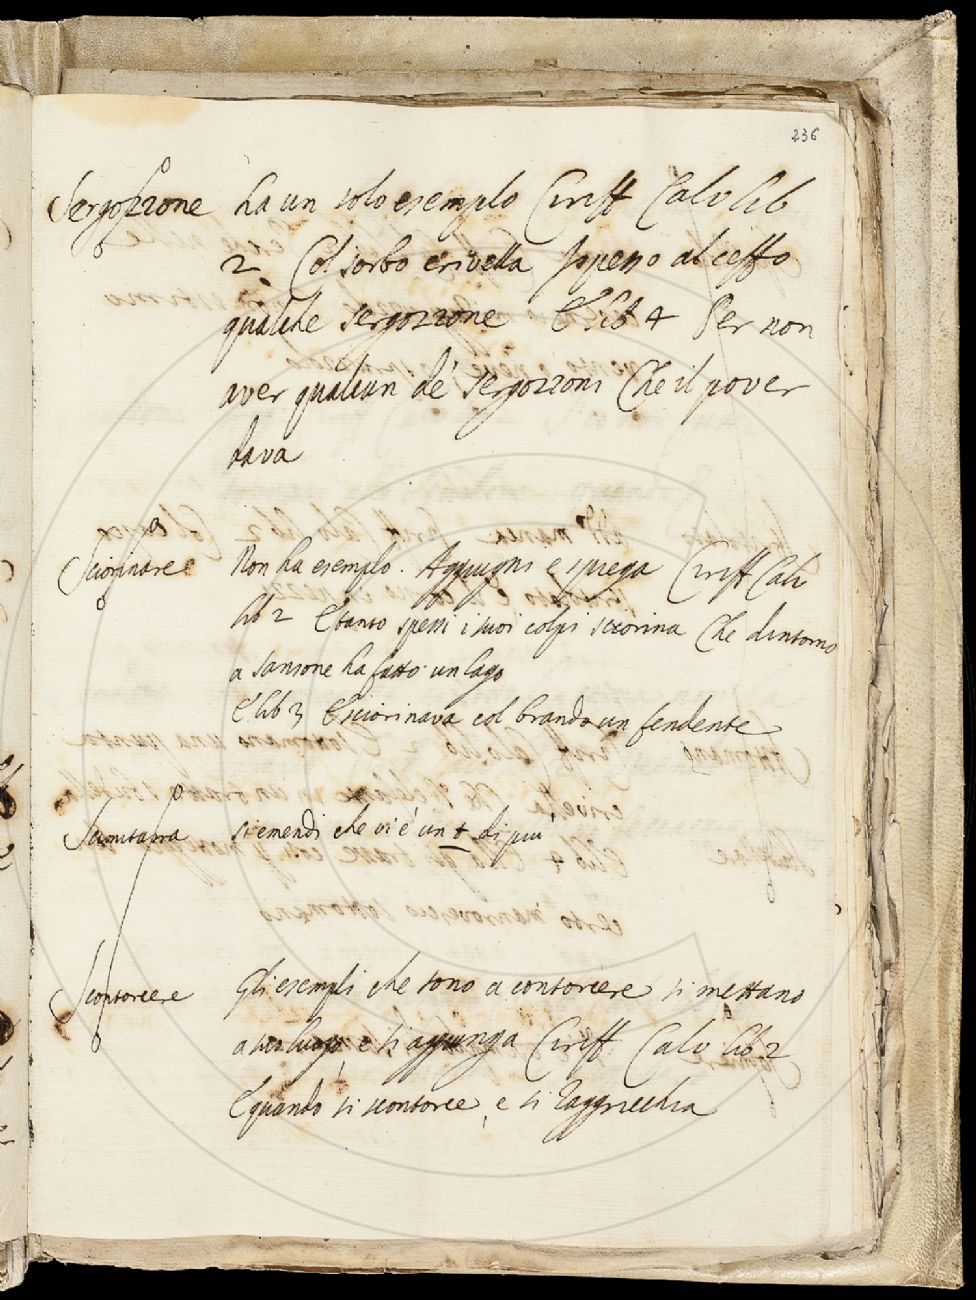 236
Sergozzone ha un solo esemplo Ciriff Calv lib
2 Col sorbo e rivella spesso al ceffo
qualche sergozzone E lib 4 Per non
aver qualcun de' sergozzoni Che il pover
dava
Sciorinare Non ha esemplo. Aggiugni e spiega Ciriff Calv
lib 2 E tanto spessi i suoi colpi sciorina Che dintorno
a Sansone ha fatto un lago
E lib 3 E sciorinava col brando un fendente
Scimitarra si emendi che vi è un t di più
Scontorcere Gli esempli che sono a contorcere si mettano
a suo luogo e si aggiunga Ciriff Calv lib. 2
E quando si scontorce, e si raggricchia